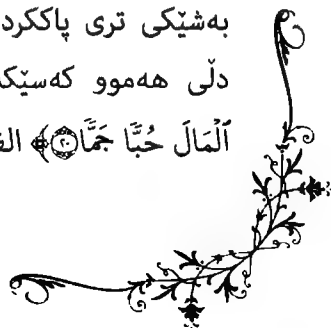 بەشێکی تری پاککرد
دڵی هەموو کەسێک
ٱلْمَالَ حُبًّا جَمًّا ٢٠﴾ الف